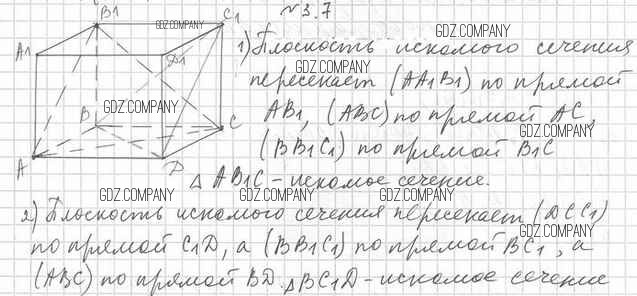 №3.7
B1
C1
A1
D1
B
C
A
D
1) Плоскость искомого сечения
пересекает (AA1B1) по прямой
AB1, (ABC) по прямой AC,
(BB1C1) по прямой B1C
△ AB1C – искомое сечение.
2) Плоскость искомого сечения пересекает (DCC1)
по прямой C1D, а (BB1C1) по прямой BC1, а
(ABC) по прямой BD. △BC1D – искомое сечение
GDZ.COMPANY
GDZ.COMPANY
GDZ.COMPANY
GDZ.COMPANY
GDZ.COMPANY
GDZ.COMPANY
GDZ.COMPANY
GDZ.COMPANY
GDZ.COMPANY
GDZ.COMPANY
GDZ.COMPANY
GDZ.COMPANY